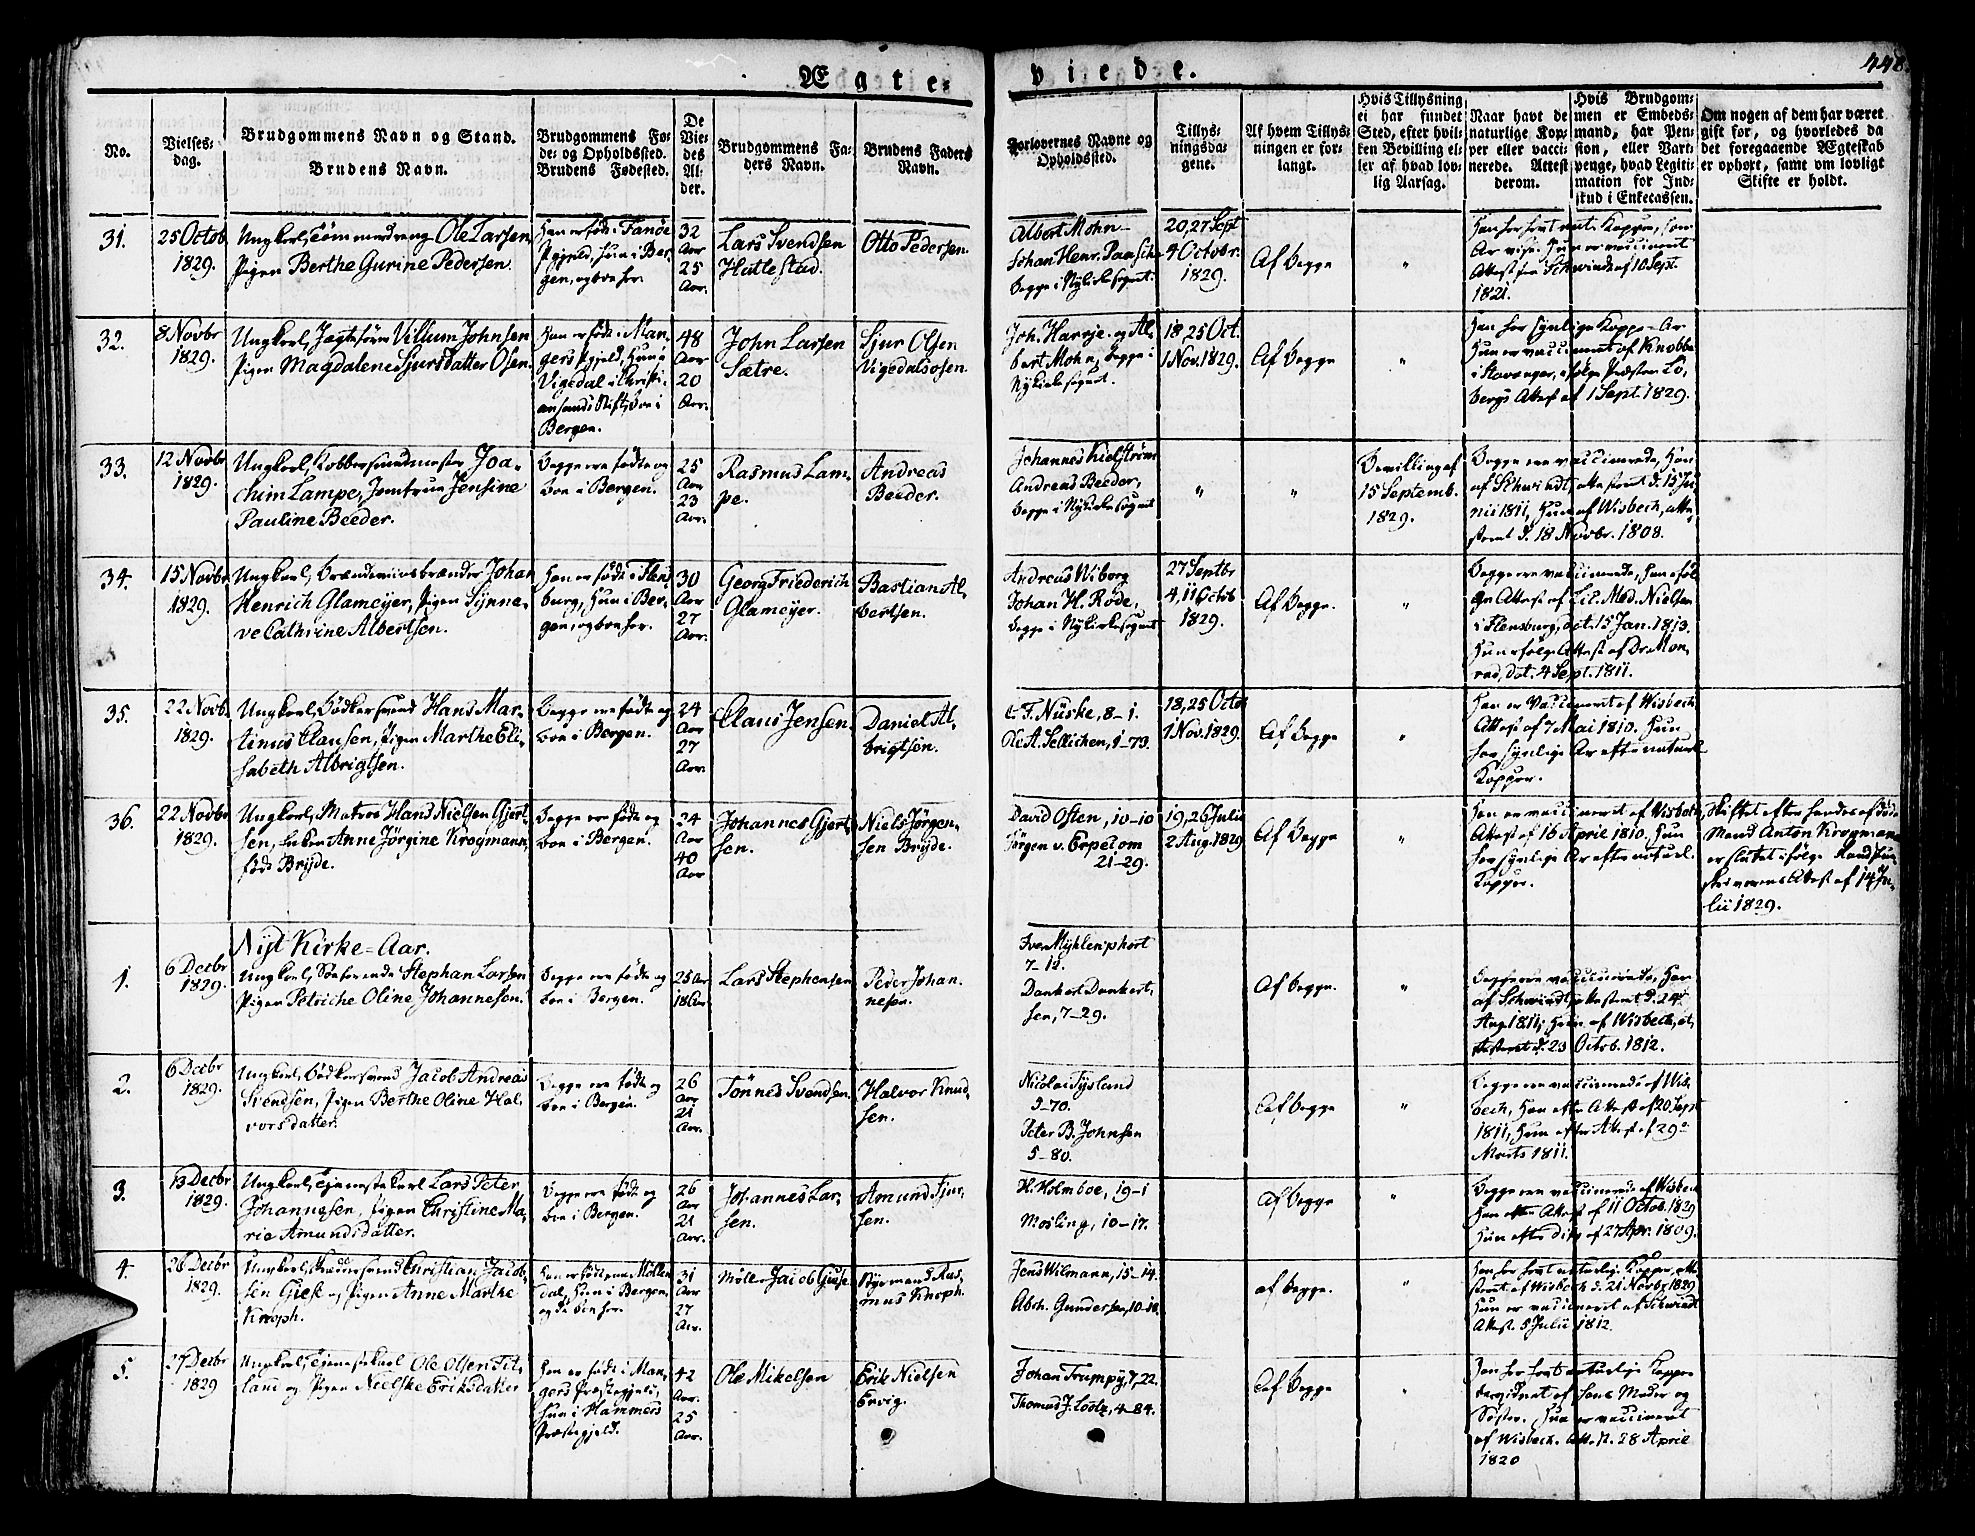 Ægte-
viede.
448.
No.
Vielses-
dag.
Brudgommens Navn og Stand.
Brudens Navn.
Brudgommens Fø-
de- og Opholdssted.
Brudens Fødested.
De
Vie-
des
Al-
der.
Brudgommens Fa-
ders Navn.
Brudens Faders
Navn.
Forlovernes Navne og
Opholdssted.
Tillys-
ningsda-
gene.
Af hvem Tillys-
ningen er for-
langt.
Hvis Tillysning
ei har fundet
Sted, efter hvil-
ken Bevilling el-
ler af hvad lov-
lig Aarsag.
Naar havt de
naturlige Kop-
per eller vacci-
nerede. Attest
derom.
Hvis Brudgom-
men er Embeds-
mand, har Pen-
sion, eller Vart-
penge, hvad Legiti-
mation for Ind-
skud i Enkecassen.
Om nogen af dem har været
gift før, og hvorledes da
det foregaaende Ægteskab
er ophørt, samt om lovligt
Skifte er holdt.
31.
25 Octob
1829.
Ungkarl, Tømmermand Ole Larsen
Pigen Berthe Gurine Pedersen.
Han er født i Fanöe
Pgjeld, hun i Ber-
gen, og boe her.
32
Aar
25
Aar.
Lars Svendsen
Hattestad.
Otto Pedersen.
Albert Mohn
Johan Henr. Paasche
begge i Nykirkesognet.
20, 27 Sept
4 Octobr.
1829.
Af begge
"
Attest fra Schwindt af 10 Sept.
1821.
32.
8 Novbr
1829.
Ungkarl, Jægtefører Villum Johnsen
Pigen Magdalene Sjursdatter Osen.
Han er født i Man-
gers Pgjeld, hun i
Vigedal i Christi-
ansands Stift, boe i
Bergen.
48
Aar
20
Aar.
John Larsen
Sætre.
Sjur Olsen
Vigedalsosen.
Joh. Harrje. og Al-
bert Mohn, begge i
Nykirkesognet.
18, 25 Oct.
1 Nov. 1829.
Af begge
"
Han har synlige Koppe-Ar
Hun er vaccineret af Knobbe
i Stavanger, ifølge Præsten Lö-
bergs Attest af 1 Sept. 1829.
33.
12 Novbr
1829.
Ungkarl, Kobbersmedmester Joa-
chim Lampe, Jomfrue Jensine
Pauline Beeder.
Begge ere fødte og
boe i Bergen.
25
Aar
23
Aar.
Rasmus Lam-
pe.
Andreas
Beeder.
Johannes Kielström
Andreas Beeder,
begge i Nykirkesognet
"
"
Bevilling af
15 Septemb.
1829.
Begge ere vaccinerede, Han
af Schwindt, attesteret d. 15 Ju-
nii 1811, Hun af Wisbech, atte-
steret d. 18 Novbr. 1808.
34.
15 Novbr
1829.
Ungkarl, Brændeviinsbrænder Johan
Henrich Glameyer, Pigen Synne-
ve Cathrine Albertsen.
Han er født i Flens-
burg, Hun i Ber-
gen, og boe her.
30
Aar
27
Aar.
Georg Friederich
Glameyer.
Bastian Al-
bertsen.
Andreas Wiborg
Johan H. Rode,
begge i Nykirkesognet
27 Septbr
4, 11 Octob
1829.
Af begge.
"
Begge ere vaccinerede, Han iføl-
ge Attest af Lic. Med. Nielsen
i Flensburg, dat. 15 Jan. 1813.
Hun ifølge Attest af Dr. Mon-
rad, dat. 4 Sept. 1811.
35.
22 Novb.
1829.
Ungkarl, Bödkersvend Hans Mar-
tinus Clausen, Pigen Marthe Eli-
sabeth Albrigtsen.
Begge ere fødte og
boe i Bergen.
24
Aar
27
Aar.
Claus Jensen.
Daniel Al-
brigtsen.
C. F. Nuske, 8-1.
Ole A. Sellichen, 1-73.
18, 25 Octo
1 Nov. 1829.
Af begge
"
Han er vaccineret af Wisbech
Attest af 7 Mai 1810. Hun
har synlige Ar efter naturl.
Kopper.
36.
22 Novbr
1829.
Ungkarl, Matros Hans Nielsen Gjert-
sen, Enken Anne Jørgine Krogmann,
født Bryde.
Begge ere fødte og
boe i Bergen.
24
Aar
40
Aar
Johannes Gjert-
sen.
Niels Jørgen-
sen Bryde.
David Osten, 10-10
Jørgen v. Erpecom
21-29.
19, 26 Julii
2 Aug. 1829
Af begge
"
Han er vaccineret af Wisbech
Attest af 16 April 1810. Hun
har synlige Ar efter naturl.
Kopper.
Skiftet efter hendes afdøde
Mand Anton Krogmann
er sluttet ifølge
Attest af 14 Ju-
lii 1829.
Nyt Kirke-Aar.
1.
6 Decbr
1829.
Ungkarl, Søefarende Stephan Larsen
Pigen Petriche Oline Johannesen.
Begge ere fødte og
boe i Bergen.
25 Aar
18 Aar
Lars Stephensen
Peder Johan-
nesen.
Iver Myhlenphort
7-12.
Dankert Dankert-
sen, 7-29.
Af begge.
"
Begge ere vaccinerede, Han
af Schwindt, attesteret d. 24
Aug. 1811, Hun af Wisbech, at-
testeret d. 23 Octob. 1812.
2.
6 Decbr
1829.
Ungkarl, Bödkersvend Jacob Andreas
Svendsen, Pigen Berthe Oline Hal-
vorsdatter.
Begge ere fødte og
boe i Bergen.
26
Aar
21
Aar.
Tönnes Svendsen.
Halvor Knud-
sen.
Nicolai Tysland
3-70.
Peter B. Johnsen
5-80.
Af begge
"
Begge ere vaccinerede af Wis-
bech, Han efter Attest af 20 Sept
1811, Hun efter Attest af 29
Marts 1811.
3.
13 Decbr
1829.
Ungkarl, Tjenestekarl Lars Peter
Johannesen, Pigen Christine Ma-
rie Amundsdatter.
Begge ere fødte og
boe i Bergen.
26
Aar
21
Aar.
Johannes Lar-
sen.
Amund Sjur-
sen.
H. Holmboe, 19-1
Mosling, 10-17.
Af begge
"
Begge ere vaccinerede af Wisbech
Han efter Attest af 11 Octob. 1829
Hun efter dito af 27 Apr. 1809.
4.
26 Decbr
1829.
Ungkarl, Skræddersvend Christian Jacob-
sen Giese og Pigen Anne Marthe
Knoph.
dal, Hun i Bergen,
og de boe her.
31
Aar
27
Aar.
Møller Jacob Giese
Styrmand Ras-
mus Knoph.
Jens Wilmann, 15-14.
Abrh. Gundersen, 10-10
af begge.
"
Han har havt naturlige Kopper, atte-
steret af Wisbech d. 21 Novbr 1829
Hun er vaccineret af Schwindt
Attest. 5 Julii 1812.
5.
27 Decbr
1829
Ungkarl, Tjenestekarl Ole Olsen Tit-
land og Pigen Nielske Eriksdatter
Han er født i Man-
gers Præstegjeld,
Hun i Hammers
Præstegjeld.
42
Aar.
25
Aar.
Ole Mikelsen
Erik Nielsen
Ervig.
Johan Trumpy, 7-22.
Thomas J. Lootz, 4-84.
Af begge
"
Han har havt naturlige Kopper
bevidnet af hans Moder og
Søster. Hun er vaccineret
af Wisbech. Att. N. 28 April
1820